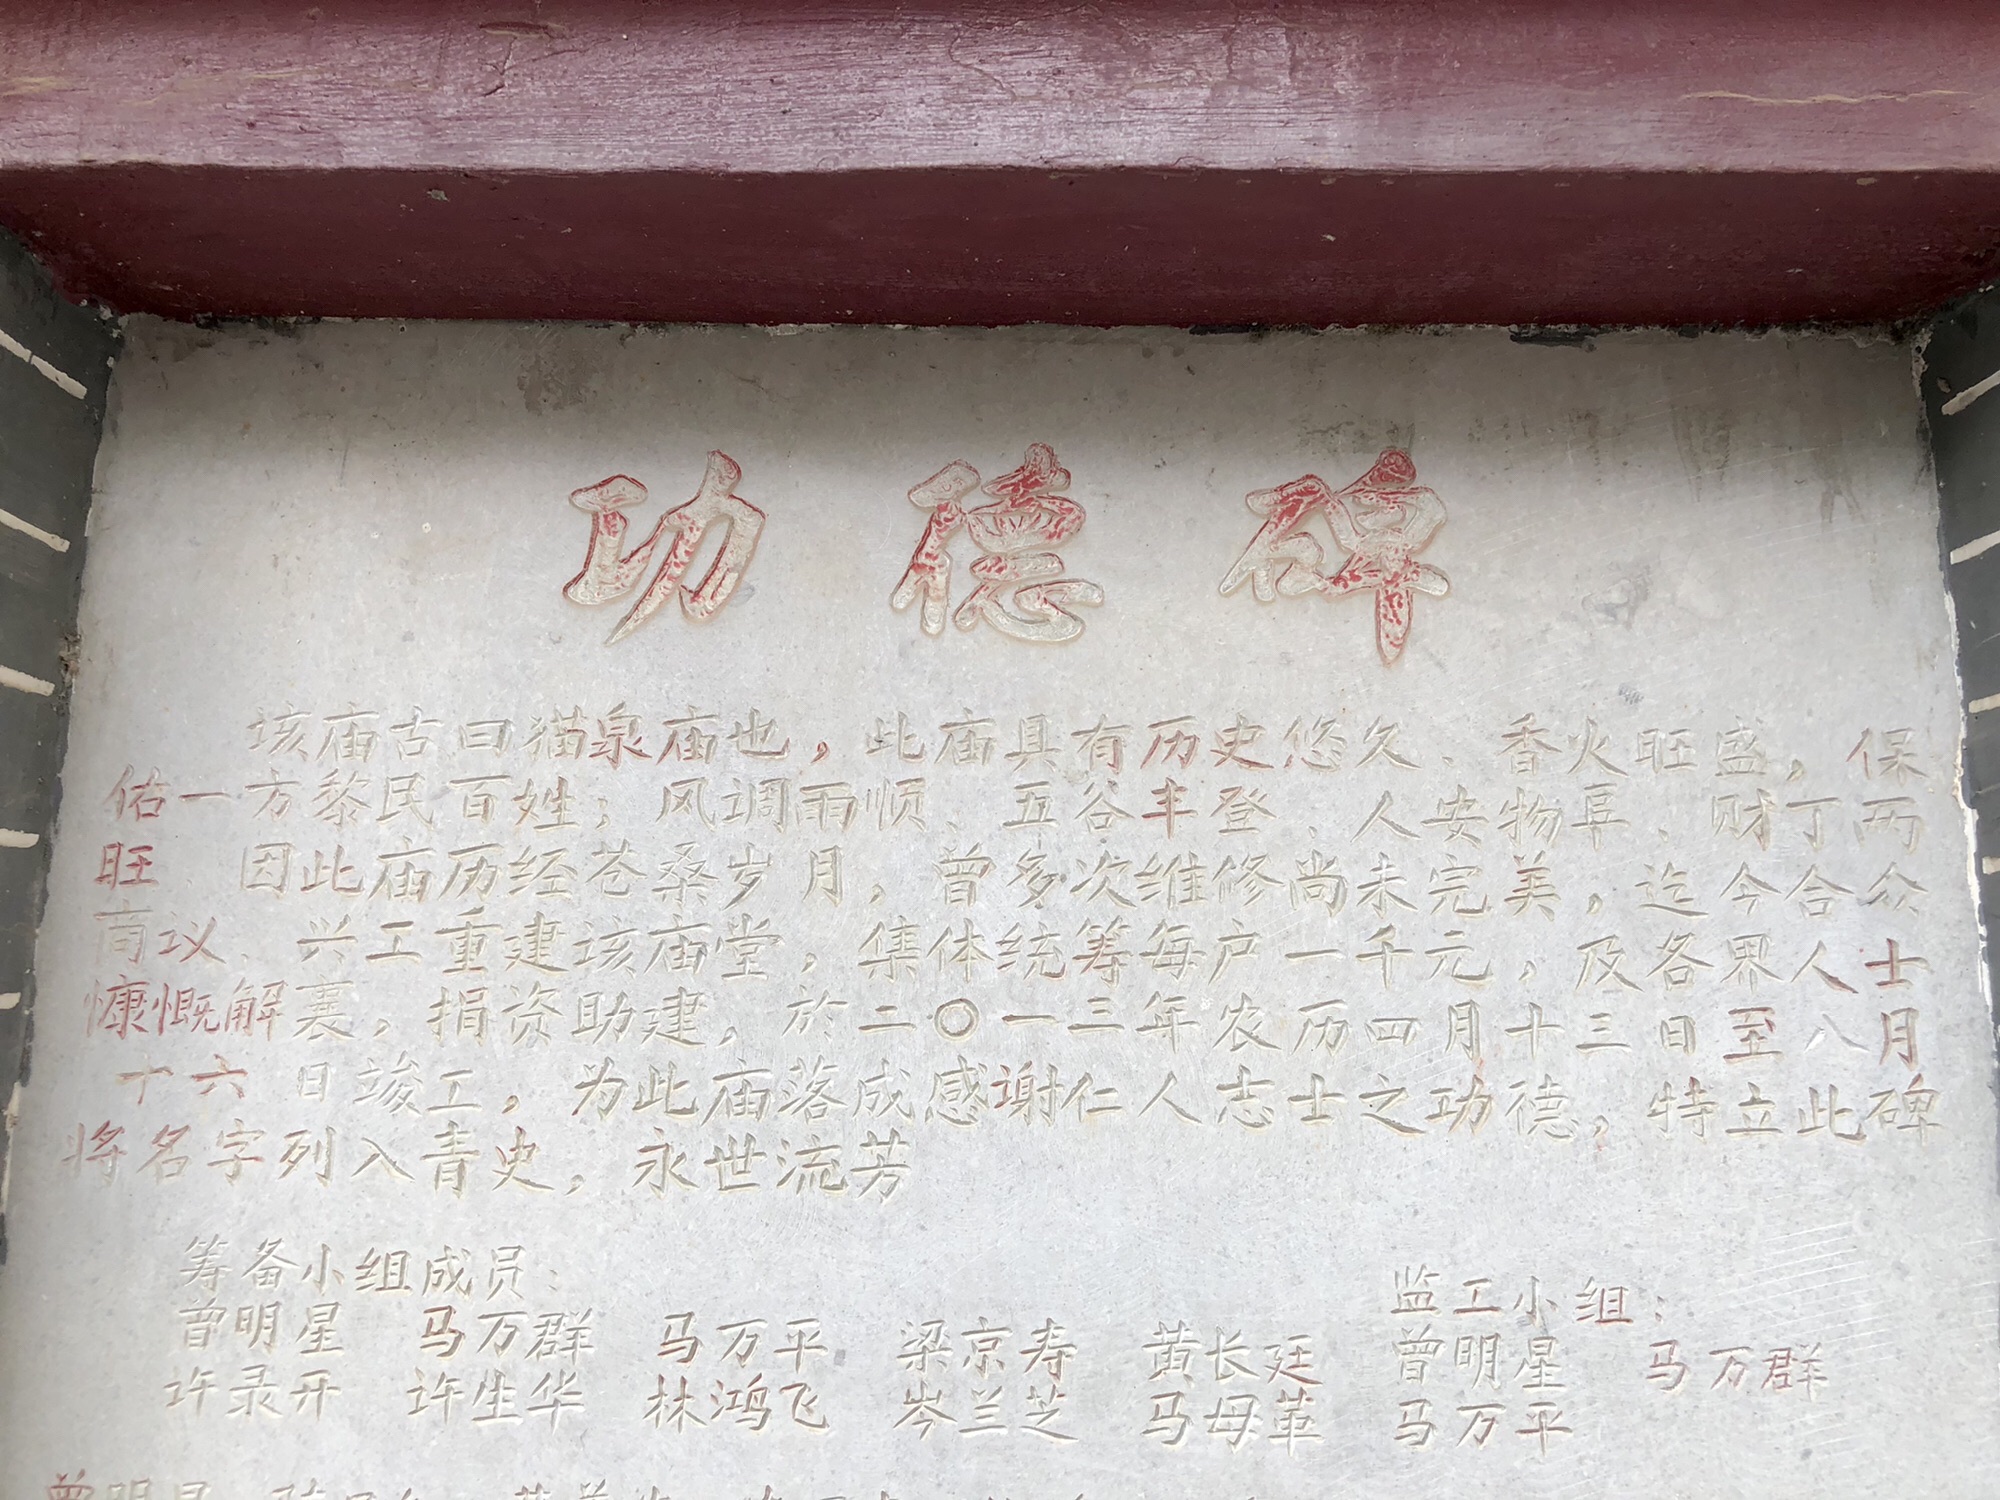 功德碑
该庙古曰猫泉庙也，此庙具有历史悠久、香火旺盛，保
佑一方黎民百姓；风调雨顺、五谷丰登、人安物阜、财丁两
旺、因此庙历经苍桑岁月，曾多次维修尚未完美，迄今合众
商议、兴工重建该庙堂，集体统筹每户一千元，及各界人士
慷慨解襄，捐资助建，於二〇一三年农历四月十三日至八月
十六日竣工，为此庙落成感谢仁人志士之功德，特立此碑
将名字列入青史，永世流芳
筹备小组成员： 监工小组：
曾明星 马万群 马万平 梁京寿 黄长廷 曾明星 马万群
许录开 许生华 林鸿飞 岑兰芝 马母革 马万平
曾明星